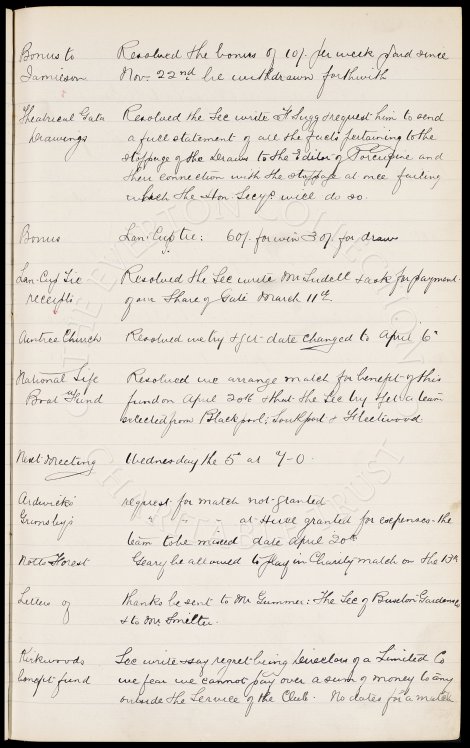 Bonus to Resolved the bonus of 10/. per week paid since
Jamieson Nov. 22nd be withdrawn forthwith
Theatrical Gala Resolved the Sec write F Sugg & request him to send
Drawings a full statement of all the facts pertaining to the
stoppage of the Draws to the Editor of Porcupine and
their connection with the stoppage at once failing
which the Hon. Secy. will do so.
Bonus Lan. Cup tie: 60/. for win 30/. for draw
Lan. Cup Tie Resolved the Sec write Mr Sudell & ask for payment
receipts of our share of Gate March 11th.
Aintree Church Resolved we try & get date changed to April 6th
National Life Resolved we arrange match for benefit of this
Boat Fund fund on April 20th & that the Sec try & get a team
selected from Blackpool; Southport & Fleetwood.
Next Meeting Wednesday the 5th at 7-0.
Ardwick's request for match not granted
Grimsby's " " " at Hull granted for expenses. the
team to be mixed date April 20th
Notts Forest Geary be allowed to play in Charity match on the 13th
Letters of thanks be sent to Mr Gummer: The Sec of Gardens
& to Mr Smelter.
Kirkwoods Sec write & say regret being Directors of a Limited Co
benefit fund we fear we cannot pay over a sum of money to any
outside the Service of the Club. No dates for a match
THE EVERTON COLLECTION
CHARITABLE TRUST